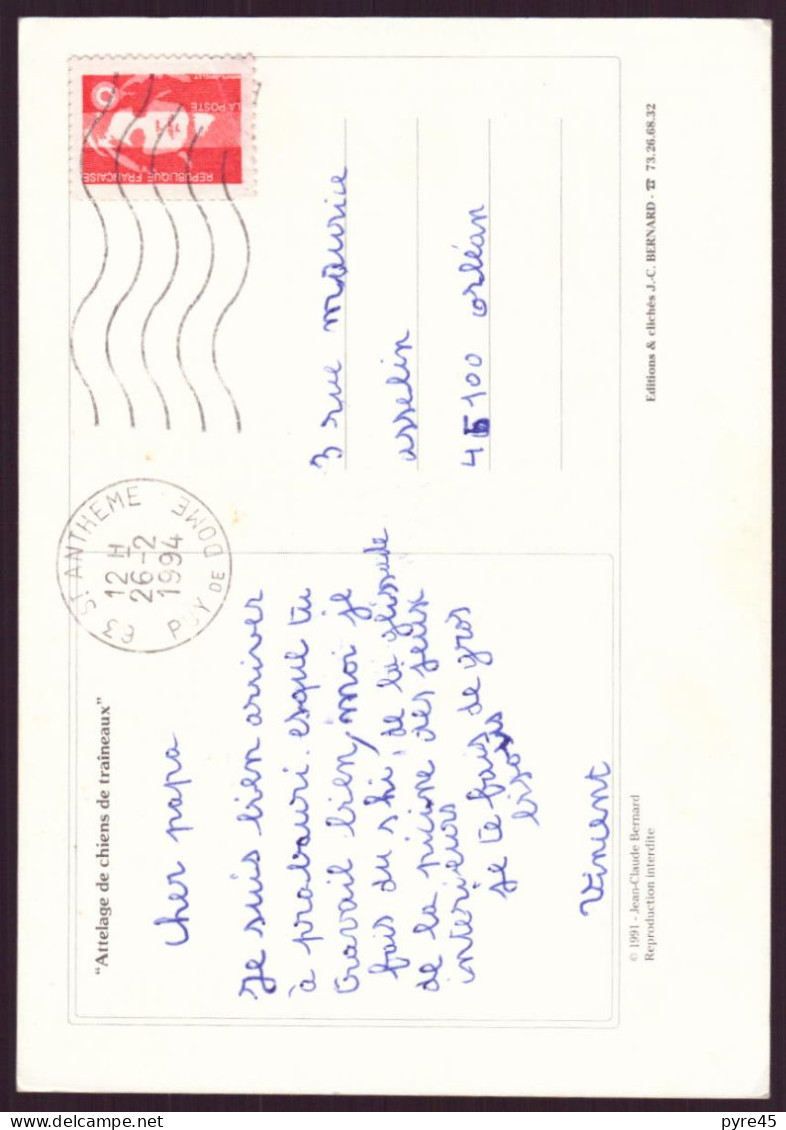 "Attelage de chiens de traineaux"
cher papa
Je suis bien arriver
à prabouri. esque tu
travail bien, moi je
fais du ski, de la glissade
de la picine des jeux
interieurs
je te fais de gros
bisous
Vincent
© 1991 - Jean-Claude Bernard
Reproduction interdite
63 ST ANTHEME
12 H
26-2
1994
PUY DE DOME
LA POSTE
REPUBLIQUE FRANCAISE
3 rue maurice
asselin
45100 orléan
Editions & clichés J.-C. BERNARD - ☎ 73.26.68.32
pyre45